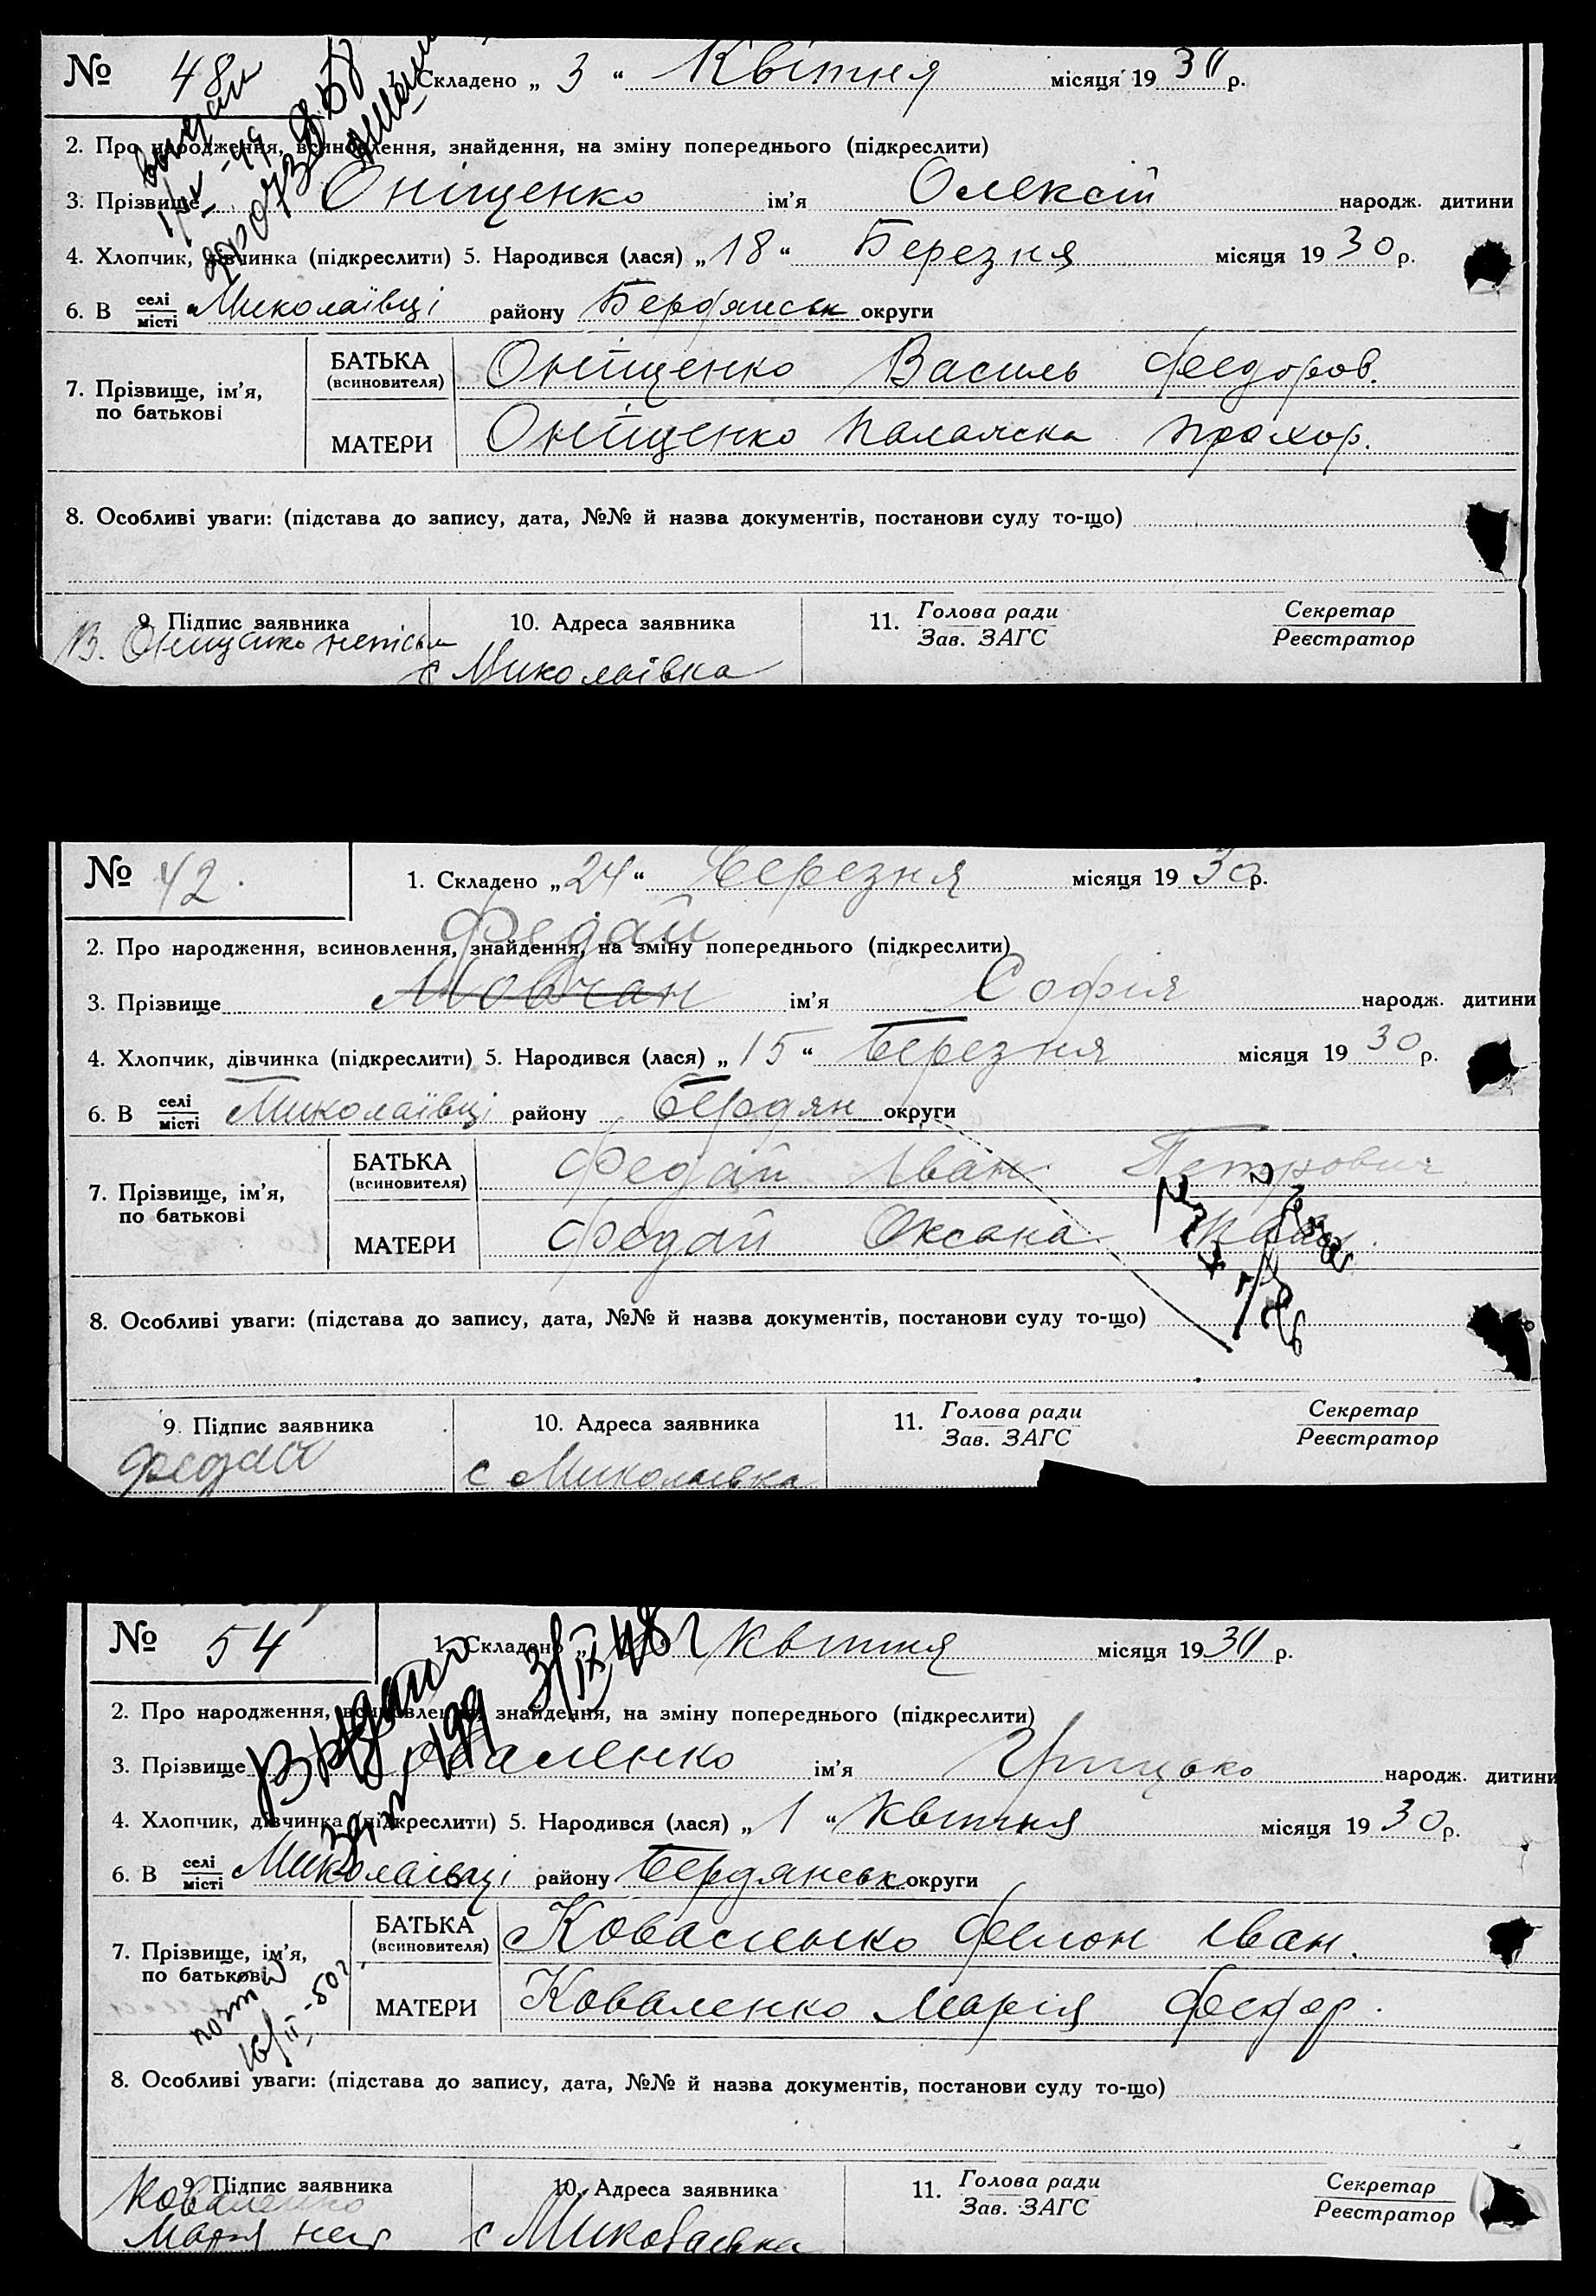 № 48 1. Складено „ 3 “ Квітня місяця 1930 р.
2. Про народження, всиновлення, знайдення, на зміну попереднього (підкреслити)
3. Прізвище Оніщенко ім'я Олексій народж. дитини
4. Хлопчик, дівчинка (підкреслити) 5. Народився (лася) „ 18 “ Березня місяця 1930 р.
6. В селі місті Миколаївці району Бердянськ округи
7. Прізвище, ім'я, по батькові
БАТЬКА (всиновителя) Оніщенко Василь Федоров.
МАТЕРИ Оніщенко Палажка Прохор.
8. Особливі уваги: (підстава до запису, дата, №№ й назва документів, постанови суду то-що)
9. Підпис заявника 10. Адреса заявника 11. Голова ради Зав. ЗАГС Секретар Реєстратор
В. Онищенко с Миколаївка
№ 42. 1. Складено „ 24 “ Березня місяця 1930 р.
Федай
2. Про народження, всиновлення, знайдення, на зміну попереднього (підкреслити)
3. Прізвище Мовчан ім'я Софія народж. дитини
4. Хлопчик, дівчинка (підкреслити) 5. Народився (лася) „ 15 “ Березня місяця 1930 р.
6. В селі місті Миколаївці району Бердян округи
7. Прізвище, ім'я, по батькові
БАТЬКА (всиновителя) Федай Іван Петрович
МАТЕРИ Федай Оксана
8. Особливі уваги: (підстава до запису, дата, №№ й назва документів, постанови суду то-що)
9. Підпис заявника 10. Адреса заявника 11. Голова ради Зав. ЗАГС Секретар Реєстратор
Федай с Миколаївка
№ 54 1. Складено Квітня місяця 1930 р.
2. Про народження, всиновлення, знайдення, на зміну попереднього (підкреслити)
3. Прізвище Коваленко ім'я Грицько народж. дитини
4. Хлопчик, дівчинка (підкреслити) 5. Народився (лася) „ 1 “ Квітня місяця 1930 р.
6. В селі місті Миколаівці району Бердянськ округи
7. Прізвище, ім'я, по батькові
БАТЬКА (всиновителя) Коваленко Филон Іван.
МАТЕРИ Коваленко Марія Федор.
16/II-50 г.
8. Особливі уваги: (підстава до запису, дата, №№ й назва документів, постанови суду то-що)
9. Підпис заявника 10. Адреса заявника 11. Голова ради Зав. ЗАГС Секретар Реєстратор
Коваленко
Марія с Миколаівка